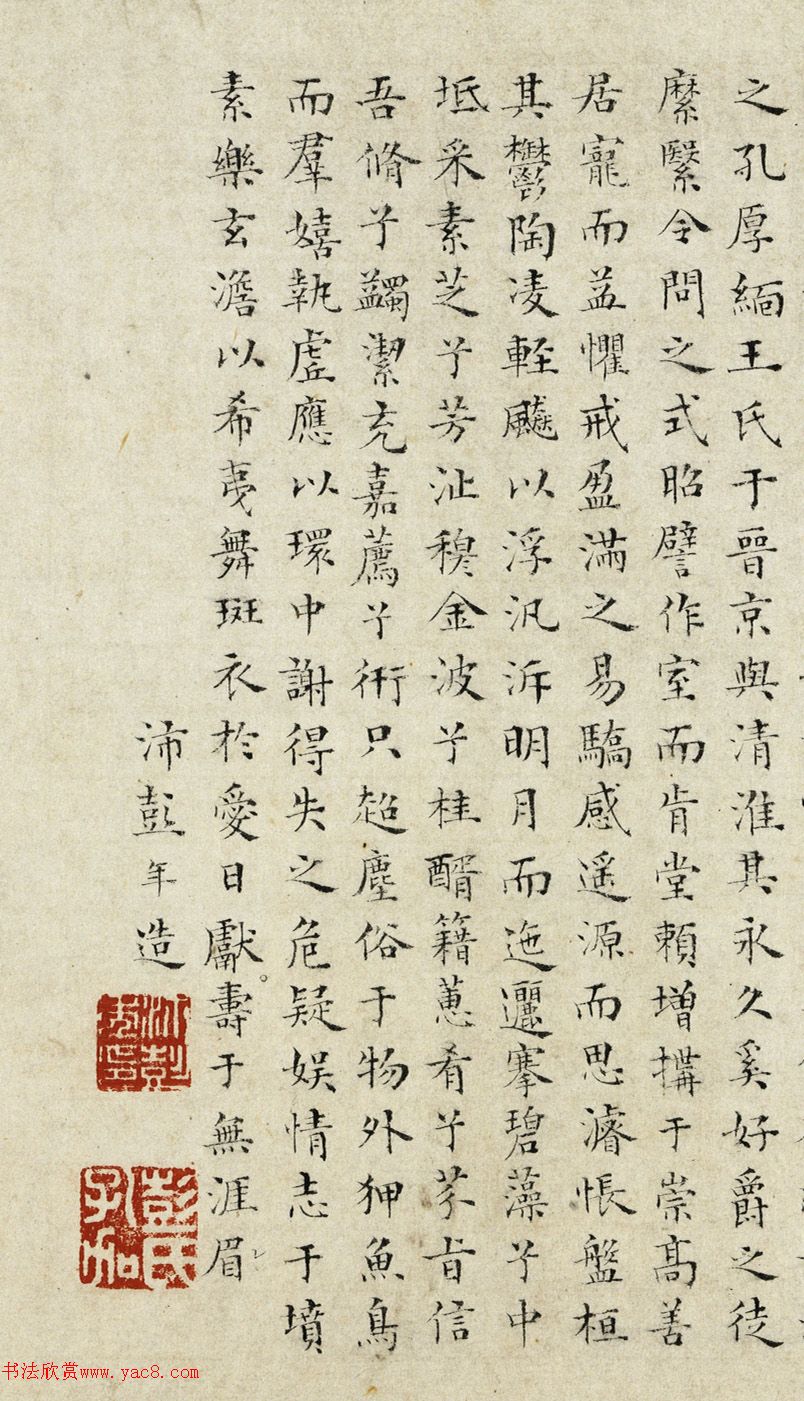 之孔厚緬王氏于晉京與清淮其永久奚好爵之徒
縻緊令問之式昭譬作室而肯堂賴增搆于崇高善
居寵而益懼戒盈滿之易驕感遥源而思濬悵盤桓
其鬱陶凌輕飈以浮汎泝明月而迤邐搴碧藻兮中
坻采素芝兮芳沚穆金波兮桂醑籍蕙肴兮芬旨信
吾脩兮蠲潔充嘉薦兮術只超塵俗于物外狎魚鳥
而羣嬉執虛應以環中謝得失之危疑娱情志于墳
素樂玄澹以希夷舞斑衣於愛日獻壽于無涯眉
沛彭年造
彭氏孔加
书法欣赏www.yac8.com